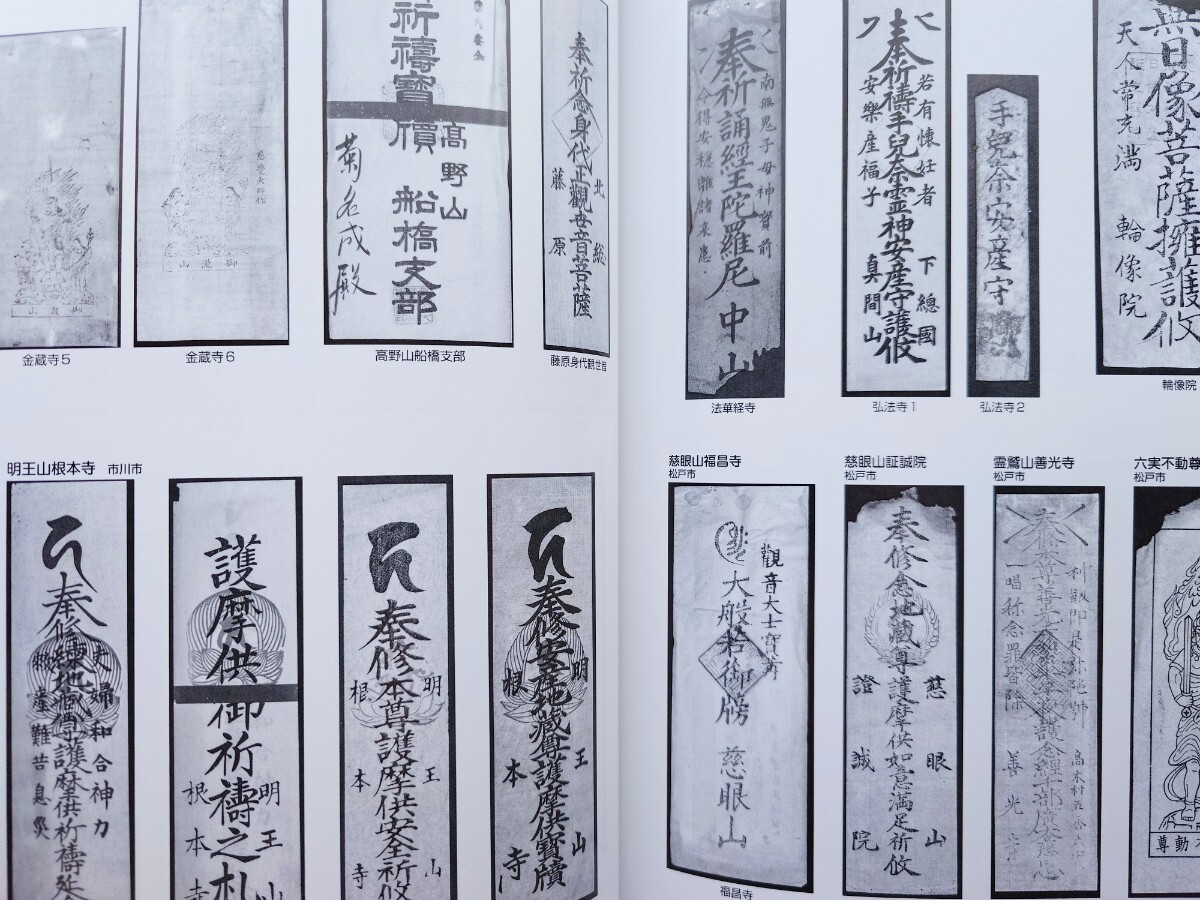 御嶽山
金蔵寺5
慈覚大師作
御嶽山
金蔵寺6
祈禱寶牘
高野山
船橋支部
菊名成殿
高野山船橋支部
奉祈念身代正觀世音菩薩
北總
藤原
藤原身代観世音
南無鬼子母神寶前
奉祈誦經王陀羅尼
中山
法華経寺
若有懐妊者
下總國
奉祈禱手兒奈霊神安産守護攸
安樂産福子
真間山
弘法寺1
手兒奈安産守
弘法寺2
無日像菩薩擁護攸
天人常充満
輪像院
輪像院
明王山根本寺 市川市
夫婦和合神力
護摩供御祈禱之札
明王山
根本寺
明王山
奉修本尊護摩供安全祈攸
根本寺
明王山
奉修安産地蔵尊護摩供寶牘
根本寺
慈眼山福昌寺
松戸市
觀音大士寶前
大般若御牘
慈眼山
福昌寺
慈眼山証誠院
松戸市
奉修念地蔵尊護摩供如意満足祈攸
慈眼山
證誠院
霊鷲山善光寺
松戸市
利劔即是弥陀號
一唱称念罪皆除
善光寺
六実不動尊
松戸市
不動尊